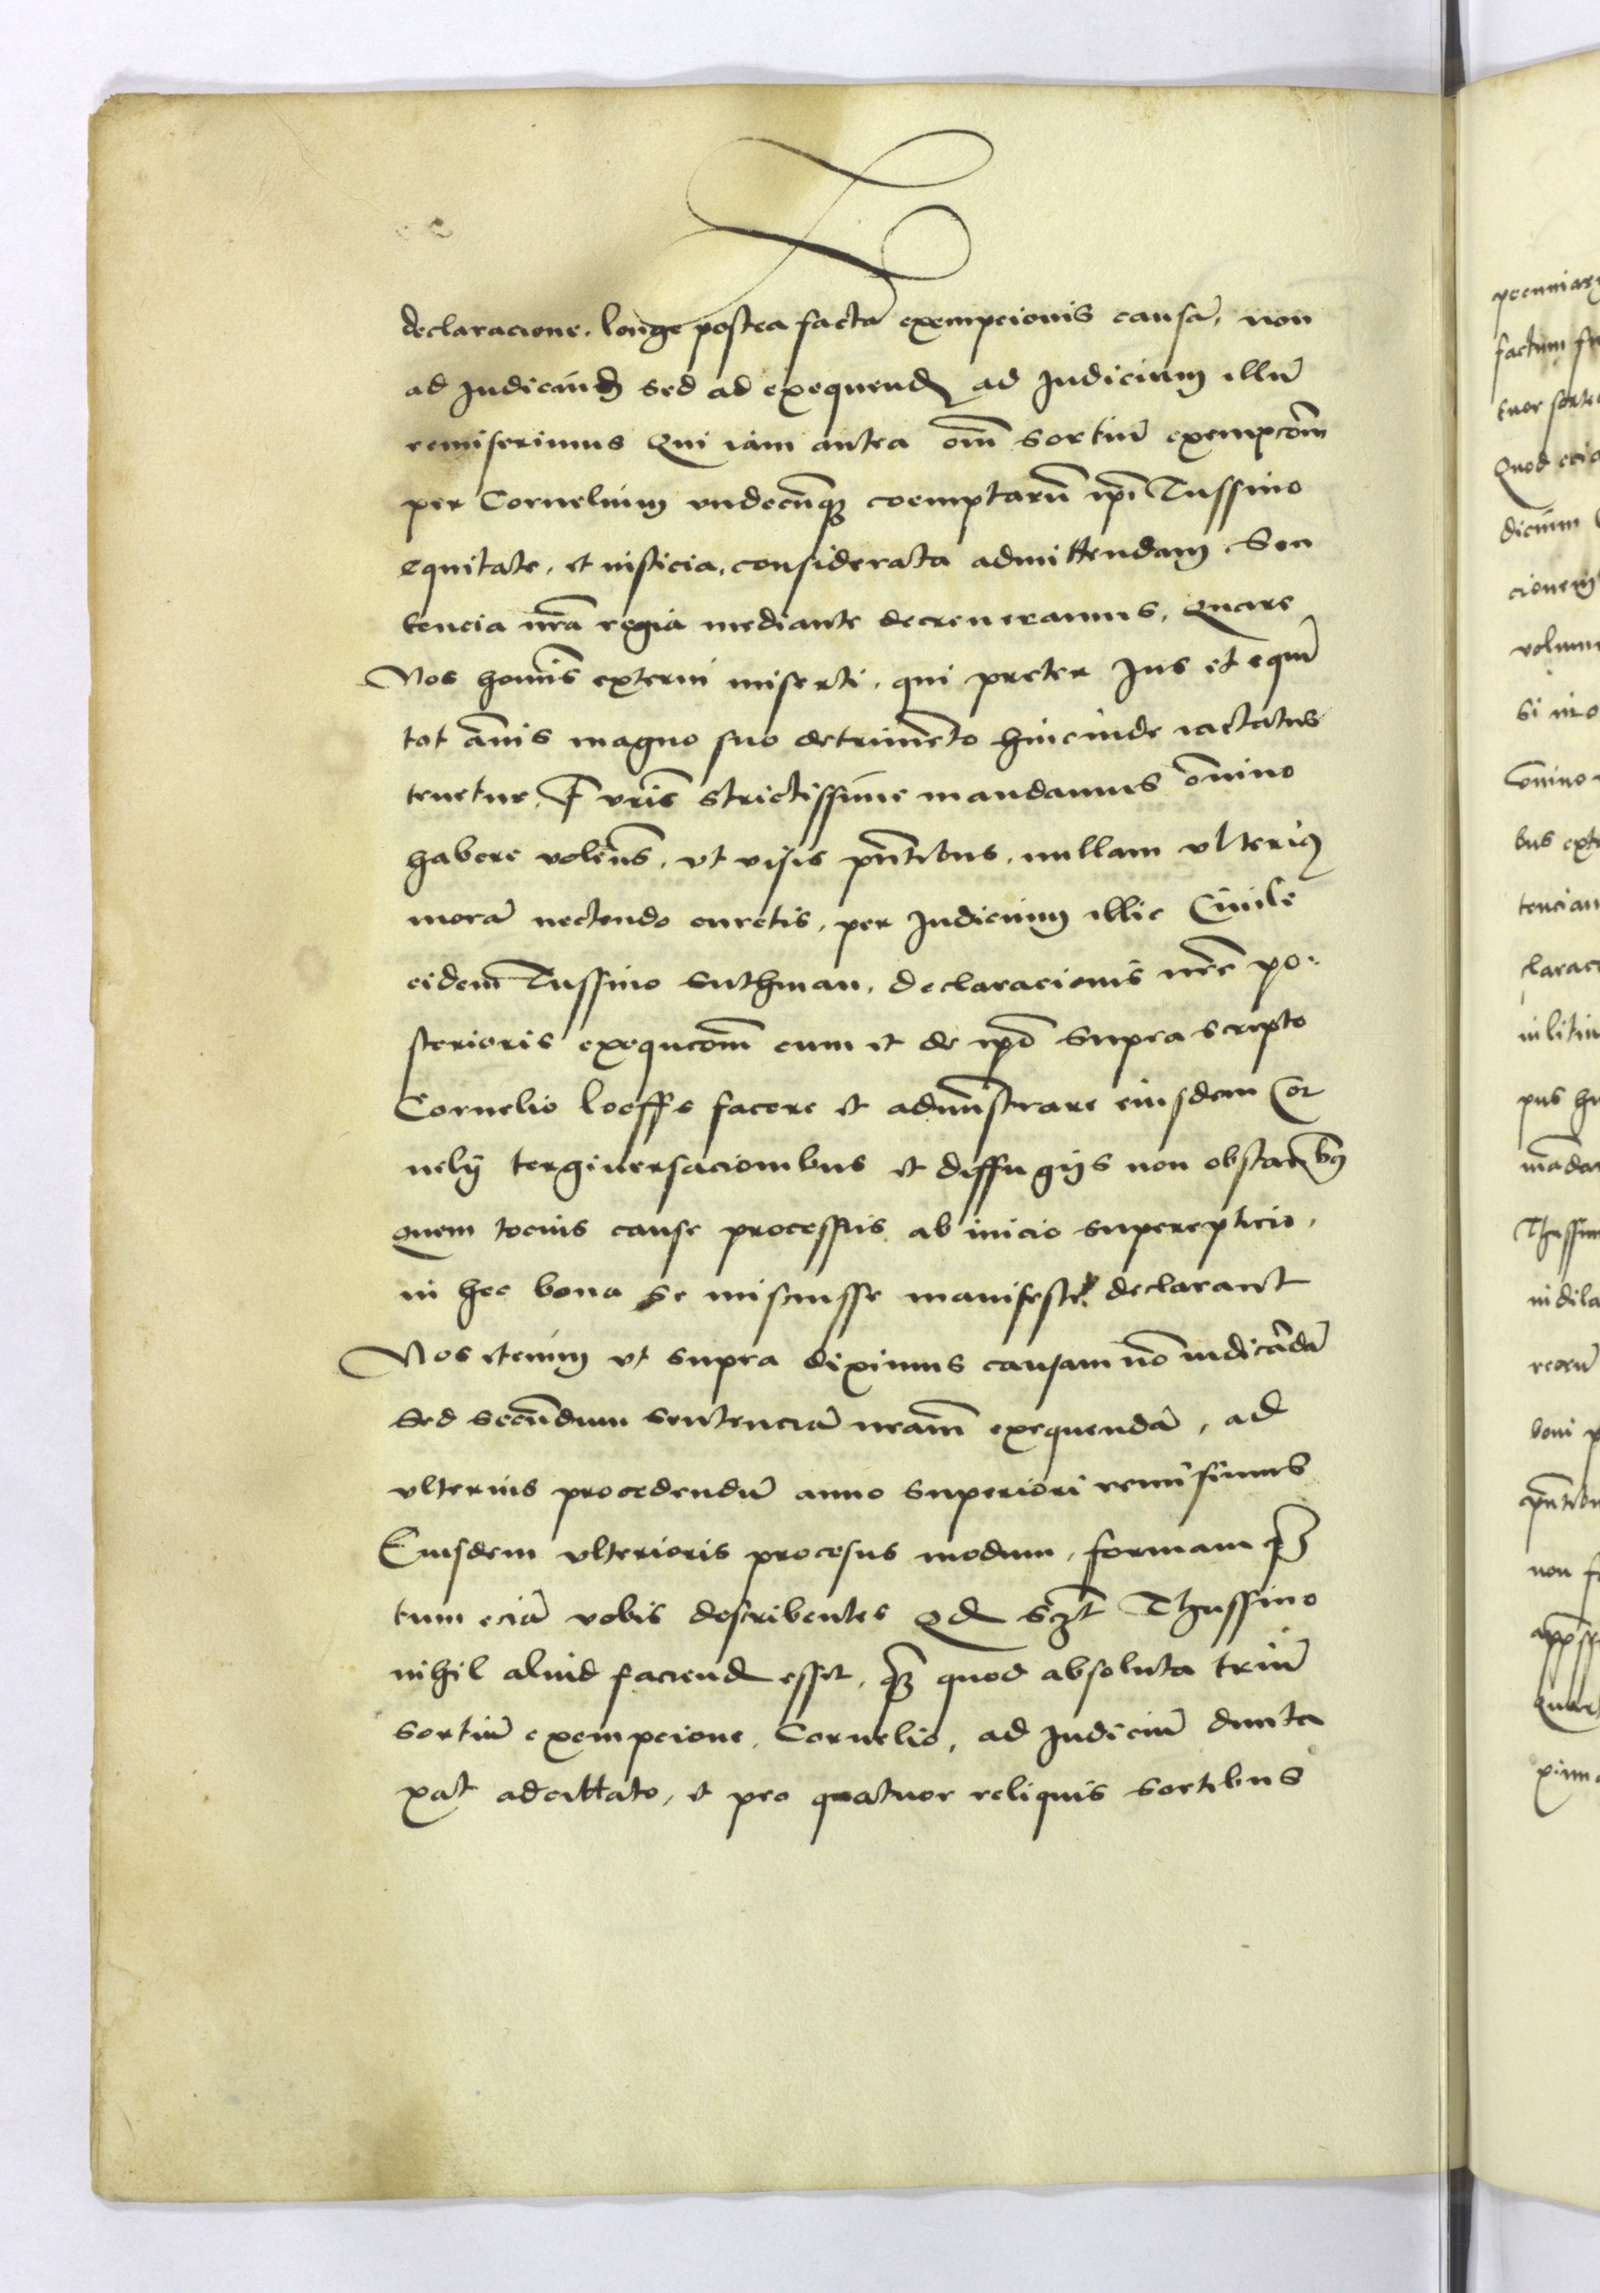 declaracione, longe postea factā exempcionis causā, non
ad Judicand sed ad exequend ad Judicium illud
remiserimus Qui iam antea om̄ sortiū exempcōm
per Cornelium vndecūq3 coemptarū ip̄i Tussino
equitate, et iusticia, considerata admittendam Sen
tencia nr̄a regia mediante decreueramus, Quare
Nos homīs externi miserti, qui preter Jus et equū
tot ānis magno suo detrimēto hincinde iactatus
tenetur, F vrīs strictissime mandamus om̄ino
habere volen̄s, vt visis pn̄tibus, nullam vlteri9
morā nectendo curetis, per Judicium illic Ciuile
eidem Tussino Suthman, declaracionis nr̄e po-
sterioris exequcōm cum et de ip̄o supra scripto
Cornelio Loeffe facere et admīstrare eiusdem Cor
nelij tergiuersacionibus et diffugijs non obstantib9
quem tocius cause processus ab inicio superepticio,
in hec bona se miscuisse manifeste declarant
Nos etenim vt supra diximus causam nō iudicādā
sed secūdum sentenciā nr̄am exequendā, ad
vlterius procedendū anno superiori remisimus
Eiusdem vlterioris procesus modum, formam q̄3
tum eciā vobis describentes Qd sczt Thussino
nihil aliud faciend esset, q̄3 quod absoluta triū
sortiū exempcione, Cornelio, ad Judiciū dunta
xat adcittato, et pro quatuor reliquis sortibus
pecuniary
factum fu
tuor sorte
Quod ecia
dicium
cionem
volum
si mo
om̄ino
bus exte
tenciam
claraci
pus hu
mādam
Thussin
boni p
pn̄tibu
non f
Quar
ximu